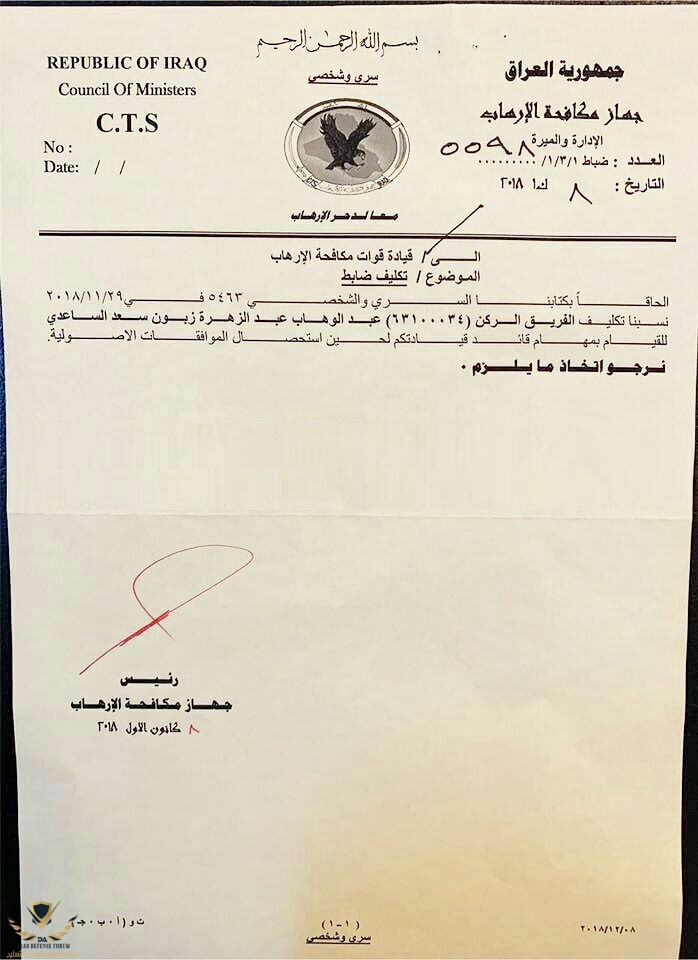 بسم الله الرحمن الرحيم
سري وشخصي
REPUBLIC OF IRAQ
Council Of Ministers
C.T.S
No :
Date: / /
جمهورية العراق
جهاز مكافحة الإرهاب
الإدارة والميرة
العدد : ضباط /١/٣/١ ......... ٥٥٩٨
التاريخ : ٨ ك١ ٢٠١٨
معا لدحر الإرهاب
الى / قيادة قوات مكافحة الإرهاب
الموضوع / تكليف ضابط
الحاقاً بكتابنا السري والشخصي ٥٤٦٣ في ٢٠١٨/١١/٢٩
نسبنا تكليف الفريق الركن (٦٣١٠٠٣٤) عبد الوهاب عبد الزهرة زبون سعد الساعدي
للقيام بمهام قائد قيادتكم لحين استحصال الموافقات الاصولية.
نرجو اتخاذ ما يلزم .
رئيس
جهاز مكافحة الإرهاب
٨ كانون الاول ٢٠١٨
ت و (أ ٠ ب ٠ ج)
(١-١)
سري وشخصي
٢٠١٨/١٢/٠٨
DA
DEFENSE FORUM